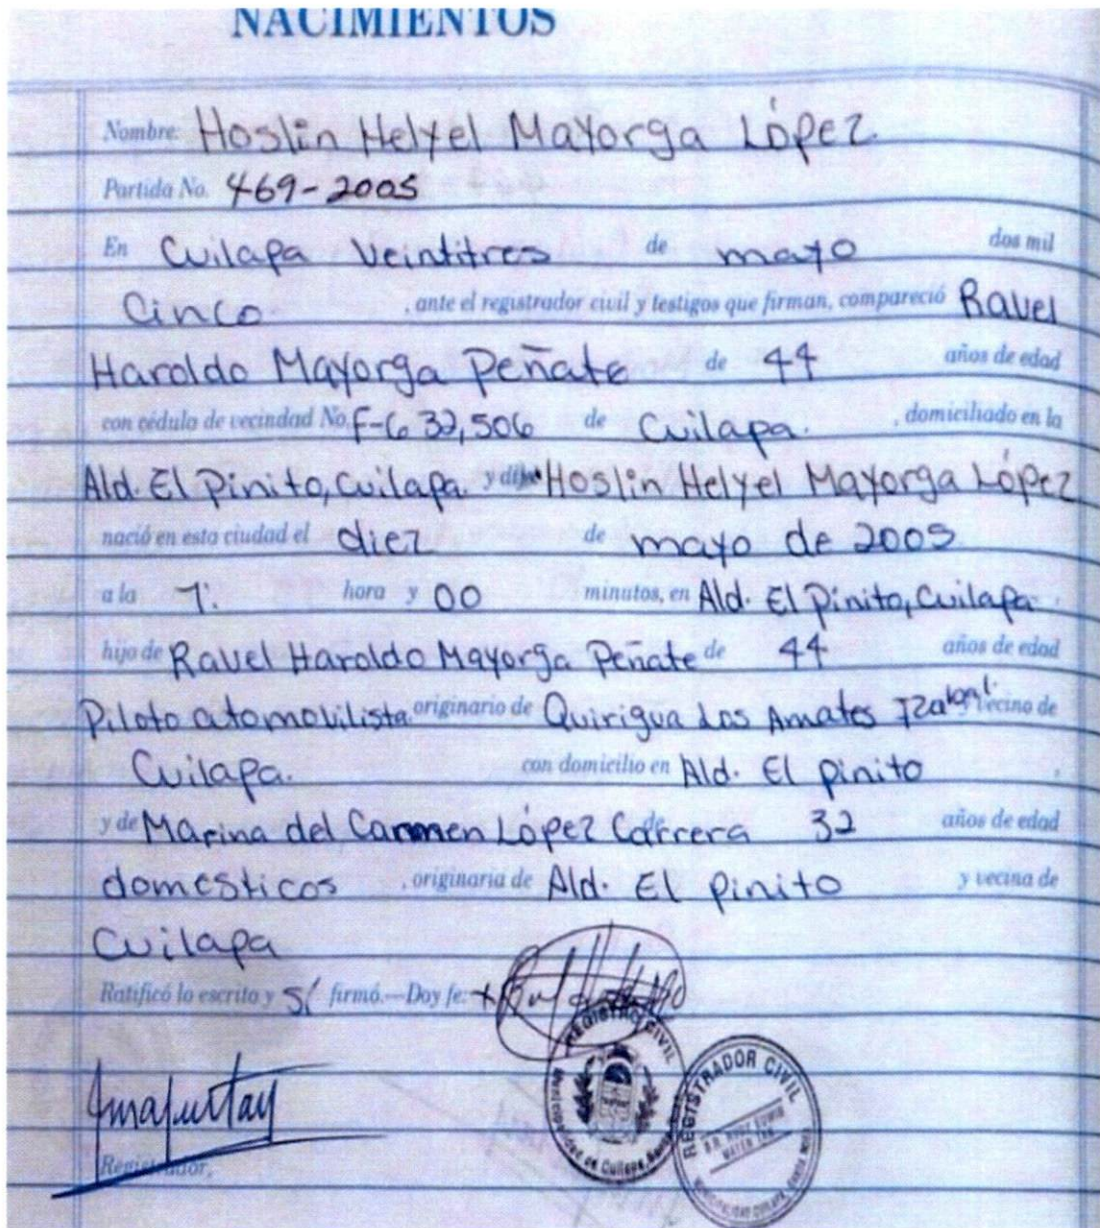 NACIMIENTOS
Nombre: Hoslin Helyel Mayorga López.
Partida No. 469-2005
En Cuilapa Veintitres de mayo dos mil
Cinco , ante el registrador civil y testigos que firman, compareció Ravel
Haroldo Mayorga Peñate de 44 años de edad
con cédula de vecindad No. F-632,506 de Cuilapa. , domiciliado en la
Ald. El Pinito, Cuilapa. y dijo Hoslin Helyel Mayorga López
nació en esta ciudad el diez de mayo de 2005
a la 7: hora y 00 minutos, en Ald. El Pinito, Cuilapa.
hijo de Ravel Haroldo Mayorga Peñate de 44 años de edad
Piloto automovilista originario de Quirigua Los Amates Izabal. y vecino de
Cuilapa. con domicilio en Ald. El pinito ,
y de Marina del Carmen López Carrera de 32 años de edad
domesticos , originaria de Ald. El pinito y vecina de
Cuilapa
Ratificó lo escrito y sí firmó.—Doy fe:
REGISTRO CIVIL
Municipalidad de Cuilapa, Santa Rosa
REGISTRADOR CIVIL
MUNICIPALIDAD CUILAPA, SANTA ROSA
Registrador,